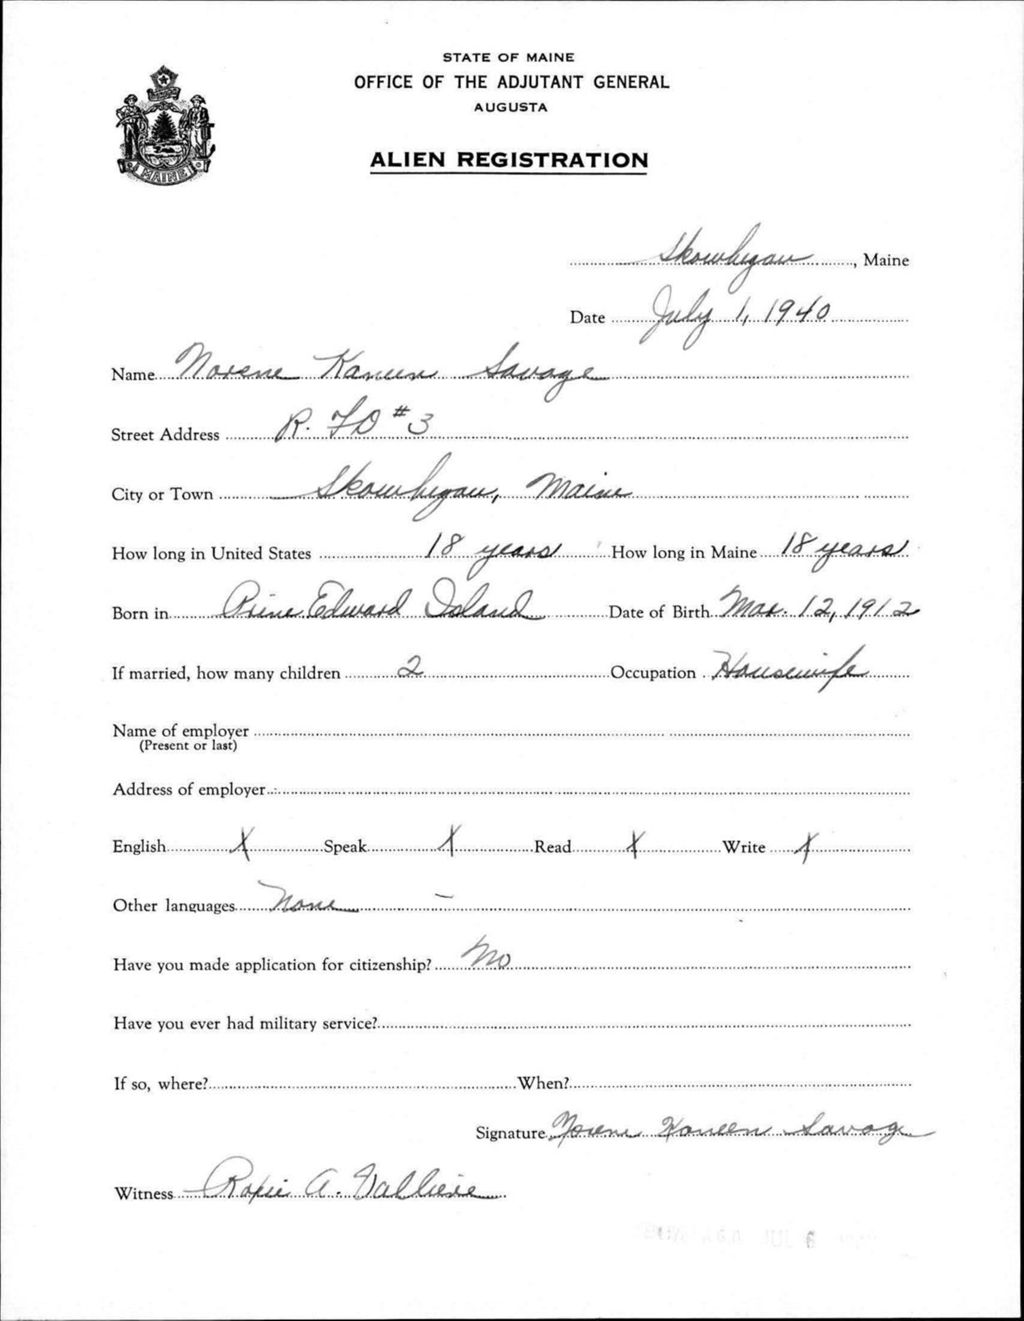 STATE OF MAINE
OFFICE OF THE ADJUTANT GENERAL
AUGUSTA
MAINE
ALIEN REGISTRATION
Skowhegan, Maine
Date July 1, 1940
Name Norene Kaneen Savage
Street Address R. FD #3
City or Town Skowhegan, Maine
How long in United States 18 years How long in Maine 18 years
Born in Prine Edward Island Date of Birth Mar. 12, 1912
If married, how many children 2 Occupation Housewife
Name of employer
(Present or last)
Address of employer
English X Speak X Read X Write X
Other languages None -
Have you made application for citizenship? No
Have you ever had military service?
If so, where? When?
Signature Norene Kaneen Savage
Witness A. Valliere